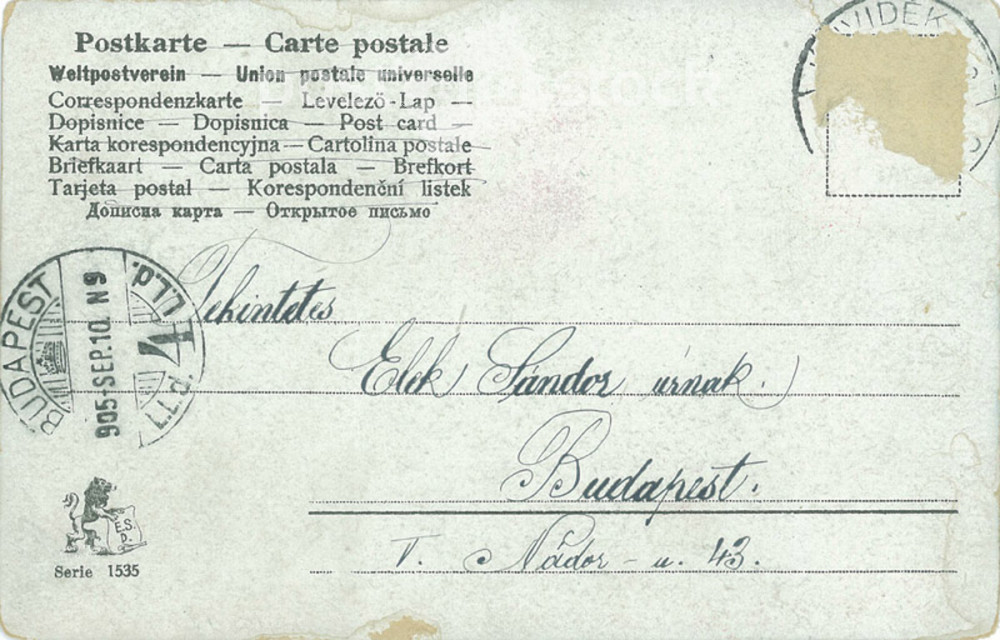 Postkarte — Carte postale
Weltpostverein — Union postale universelle
Correspondenzkarte — Levelező-Lap —
Dopisnice — Dopisnica — Post card —
Karta korespondencyjna — Cartolina postale
Briefkaart — Carta postala — Brefkort
Tarjeta postal — Korespondenční listek
Дописна карта — Открытое письмо
VIDÉK
BUDAPEST
905-SEP.10. N9
4
Tekintetes
Elek Sándor úrnak.
Budapest.
V. Nádor - u. 43.
E.S.
D.
Serie 1535